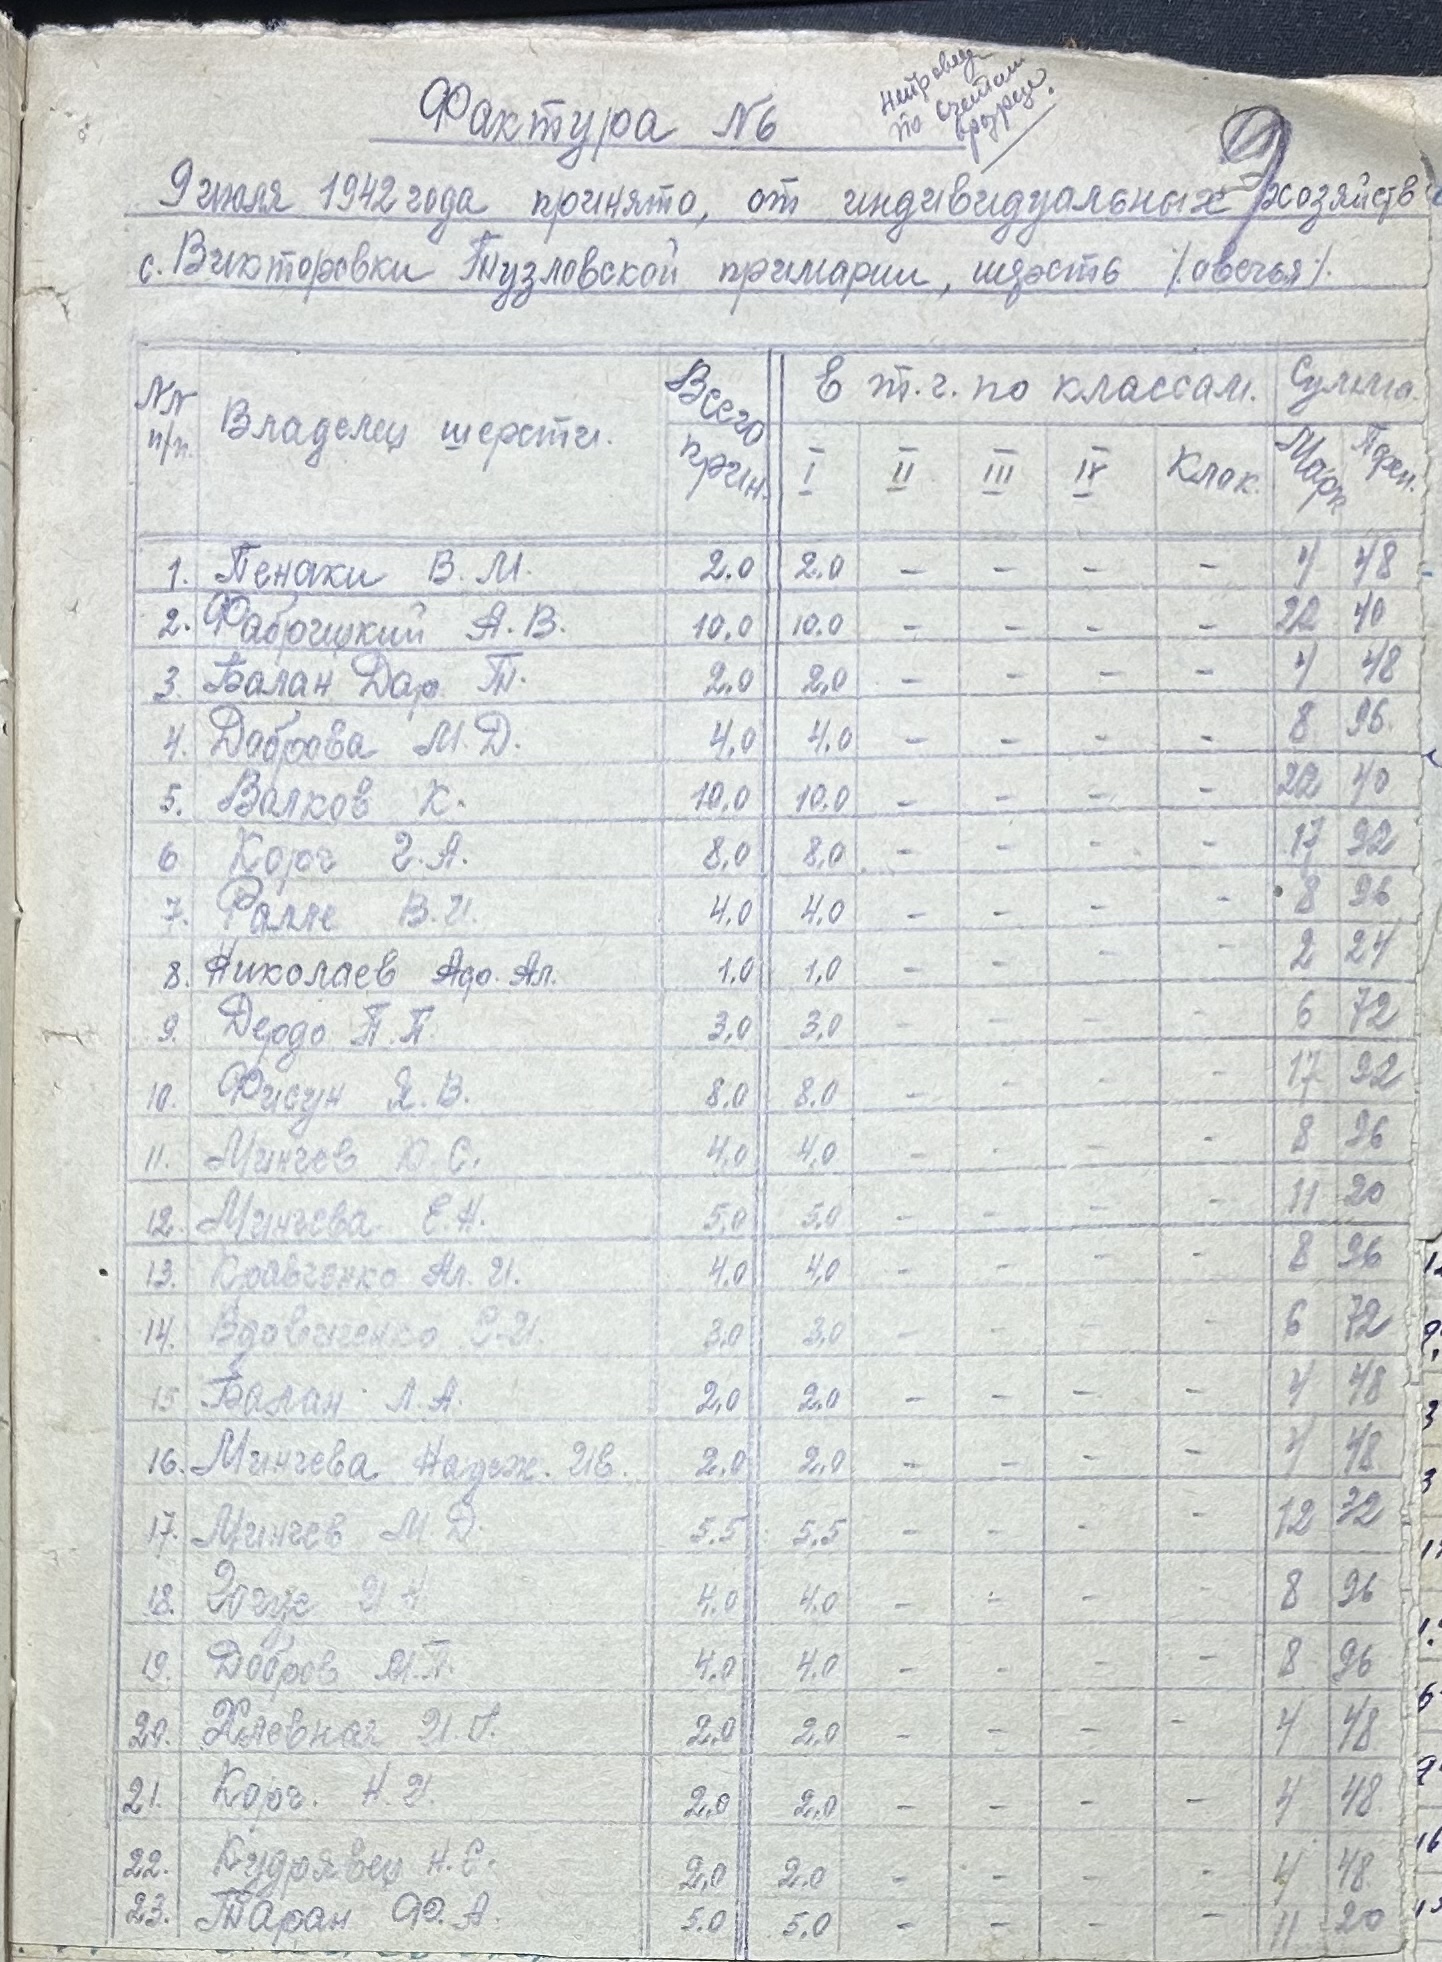 Фактура №6
непроведе
по счетам
9
9 июля 1942 года принято, от индивидуальных хозяйств
с. Викторовки Тузловской примарии, шерсть /.овечья/.
NN п/п. Владелец шерсти. Всего прин. в т.ч. по классам. Сумма.
I II III IV Клок. Марк Пфен.
1. Пенаки В.М. 2.0 2.0 – – – – 4 48
2. Фабрицкий А.В. 10.0 10.0 – – – – 22 40
3. Балан Дар. Т. 2.0 2.0 – – – – 4 48
4. Доброва М.Д. 4.0 4.0 – – – – 8 96
5. Валков К. 10.0 10.0 – – – – 22 40
6 Корч Г.А. 8.0 8.0 – – – – 17 92
7. В.И. 4.0 4.0 – – – – 8 96
8. Николаев Афо. Ал. 1.0 1.0 – – – – 2 24
9. Дердо П.П. 3.0 3.0 – – – – 6 72
10. Фисун Я.В. 8.0 8.0 – – – – 17 92
11. Минчев Ю.С. 4.0 4.0 – – – – 8 96
12. Минчева Е.Н. 5.0 5.0 – – – – 11 20
13. Кравченко Ал.И. 4.0 4.0 – – – – 8 96
14. Вдовиченко С.И. 3.0 3.0 – – – – 6 72
15 Балан Л.А. 2.0 2.0 – – – – 4 48
16. Минчева Надеж. Ив. 2.0 2.0 – – – – 4 48
17. Минчев М.Д. 5.5 5.5 – – – – 12 32
18. 4.0 4.0 – – – – 8 96
19. Добров М.П. 4.0 4.0 – – – – 8 96
20. 2.0 2.0 – – – – 4 48
21. Корч. Н.И. 2.0 2.0 – – – – 4 48
22. Кудрявец Н.С. 2.0 2.0 – – – – 4 48
23. Таран Ф.А. 5.0 5.0 – – – – 11 20